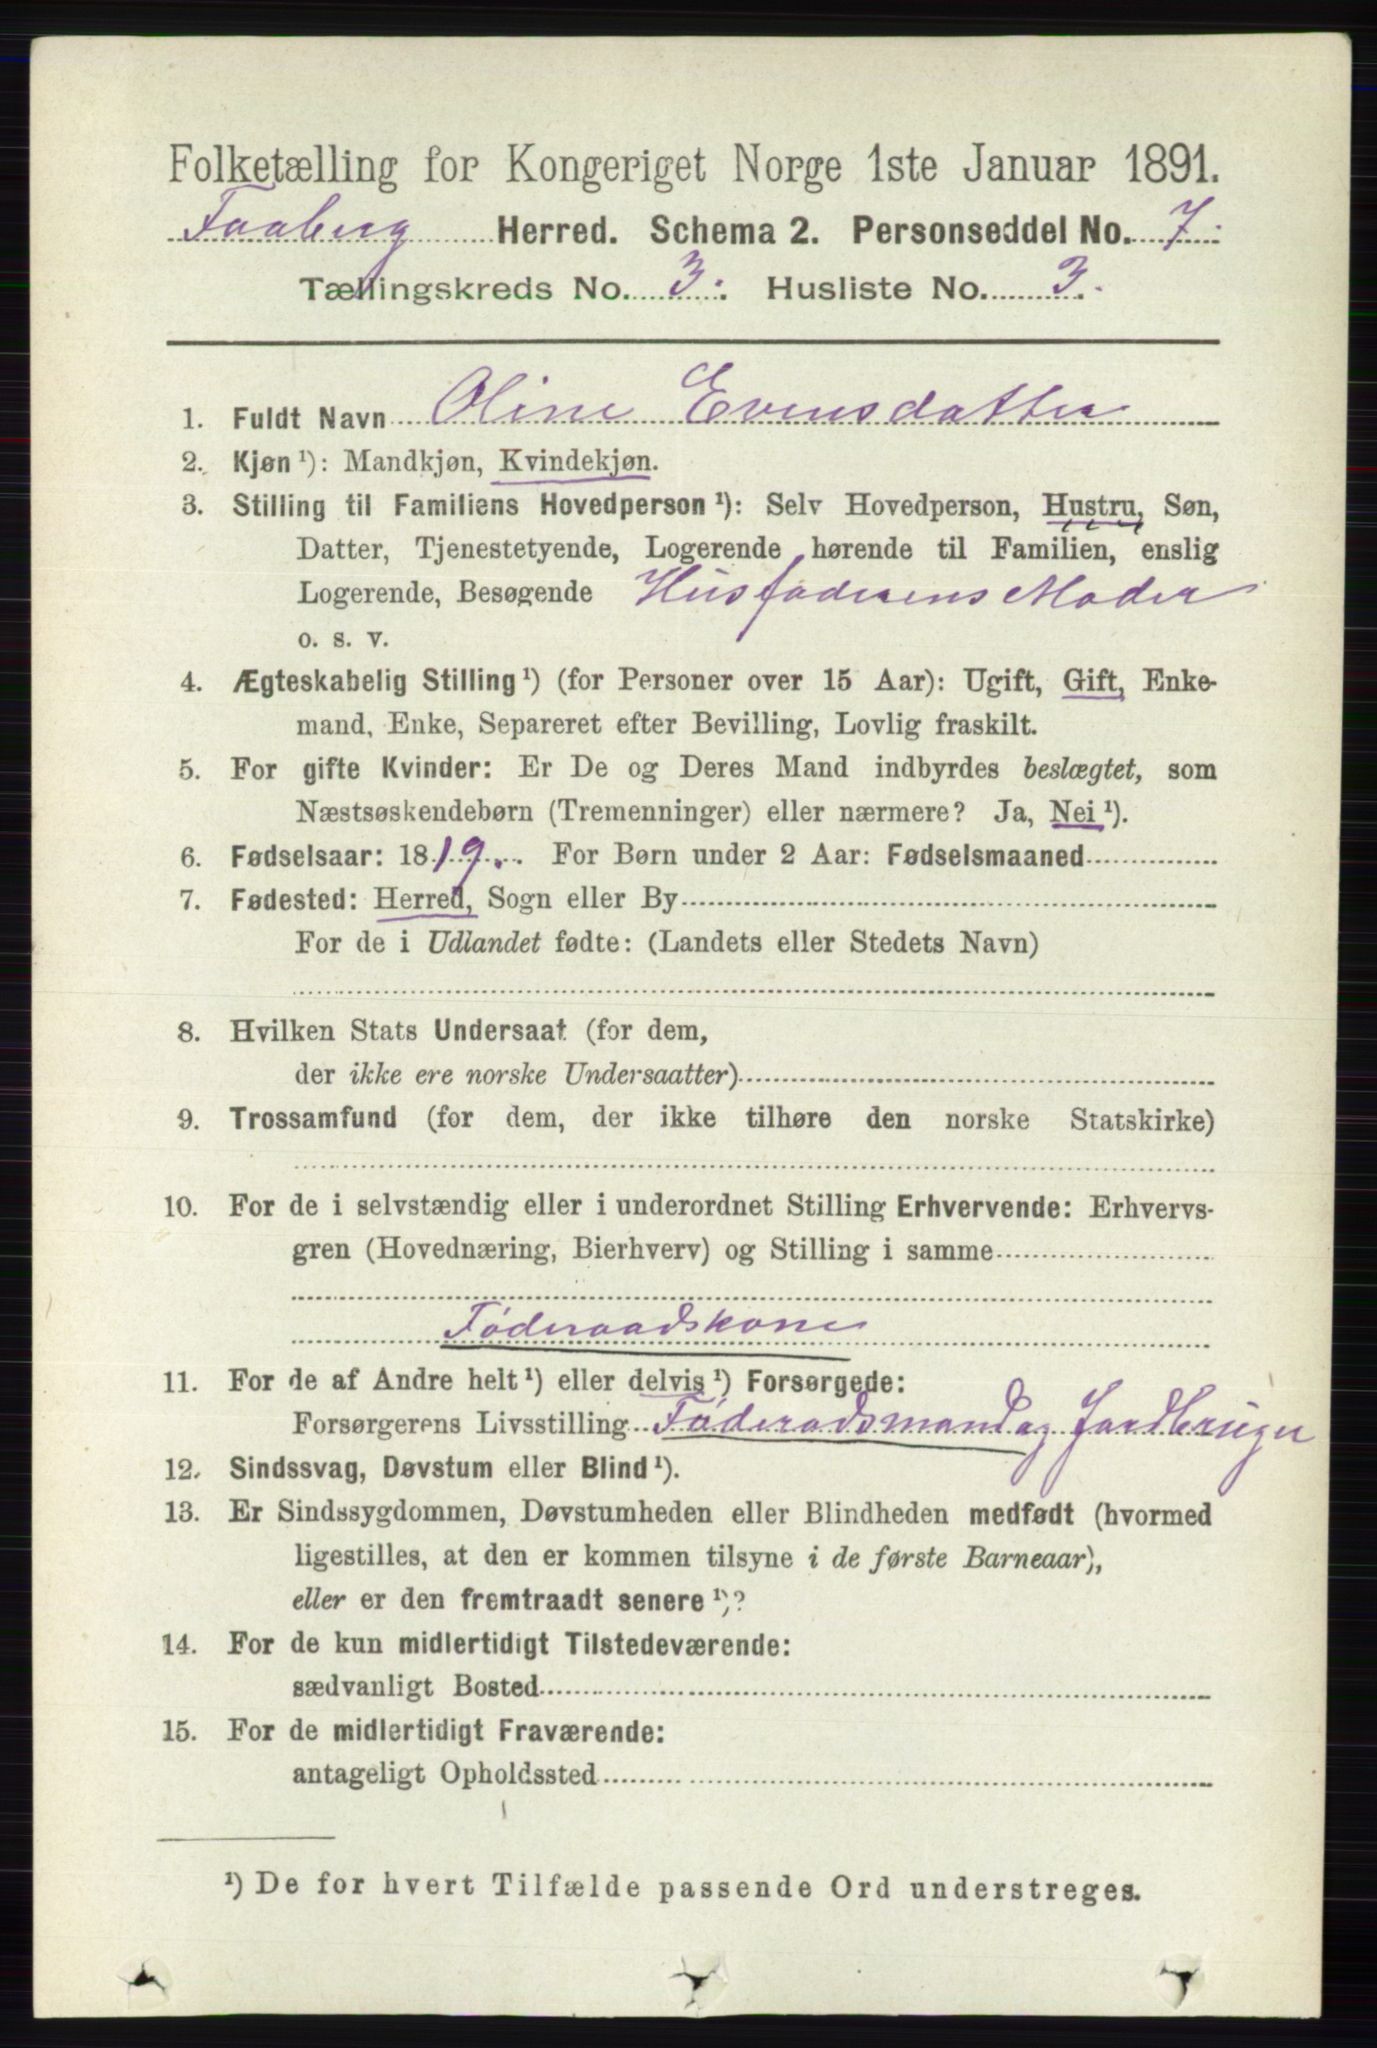 Folketælling for Kongeriget Norge 1ste Januar 1891.
Faaberg Herred. Schema 2. Personseddel No. 7.
Tællingskreds No. 3. Husliste No. 3.
1. Fuldt Navn Oline Evensdatter
2. Kjøn ¹): Mandkjøn, Kvindekjøn.
3. Stilling til Familiens Hovedperson ¹): Selv Hovedperson, Hustru, Søn,
Datter, Tjenestetyende, Logerende hørende til Familien, enslig
Logerende, Besøgende Husfaderens Moder
o. s. v.
4. Ægteskabelig Stilling ¹) (for Personer over 15 Aar): Ugift, Gift, Enke-
mand, Enke, Separeret efter Bevilling, Lovlig fraskilt.
5. For gifte Kvinder: Er De og Deres Mand indbyrdes beslægtet, som
Næstsøskendebørn (Tremenninger) eller nærmere? Ja, Nei ¹).
6. Fødselsaar: 1819. For Børn under 2 Aar: Fødselsmaaned
7. Fødested: Herred, Sogn eller By
For de i Udlandet fødte: (Landets eller Stedets Navn)
8. Hvilken Stats Undersaat (for dem,
der ikke ere norske Undersaatter)
9. Trossamfund (for dem, der ikke tilhøre den norske Statskirke)
10. For de i selvstændig eller i underordnet Stilling Erhvervende: Erhvervs-
gren (Hovednæring, Bierhverv) og Stilling i samme
Føderaadskone
11. For de af Andre helt ¹) eller delvis ¹) Forsørgede:
Forsørgerens Livsstilling Føderadsmand og Jordbruger
12. Sindssvag, Døvstum eller Blind ¹).
13. Er Sindssygdommen, Døvstumheden eller Blindheden medfødt (hvormed
ligestilles, at den er kommen tilsyne i de første Barneaar),
eller er den fremtraadt senere ¹)?
14. For de kun midlertidigt Tilstedeværende:
sædvanligt Bosted
15. For de midlertidigt Fraværende:
antageligt Opholdssted
¹) De for hvert Tilfælde passende Ord understreges.